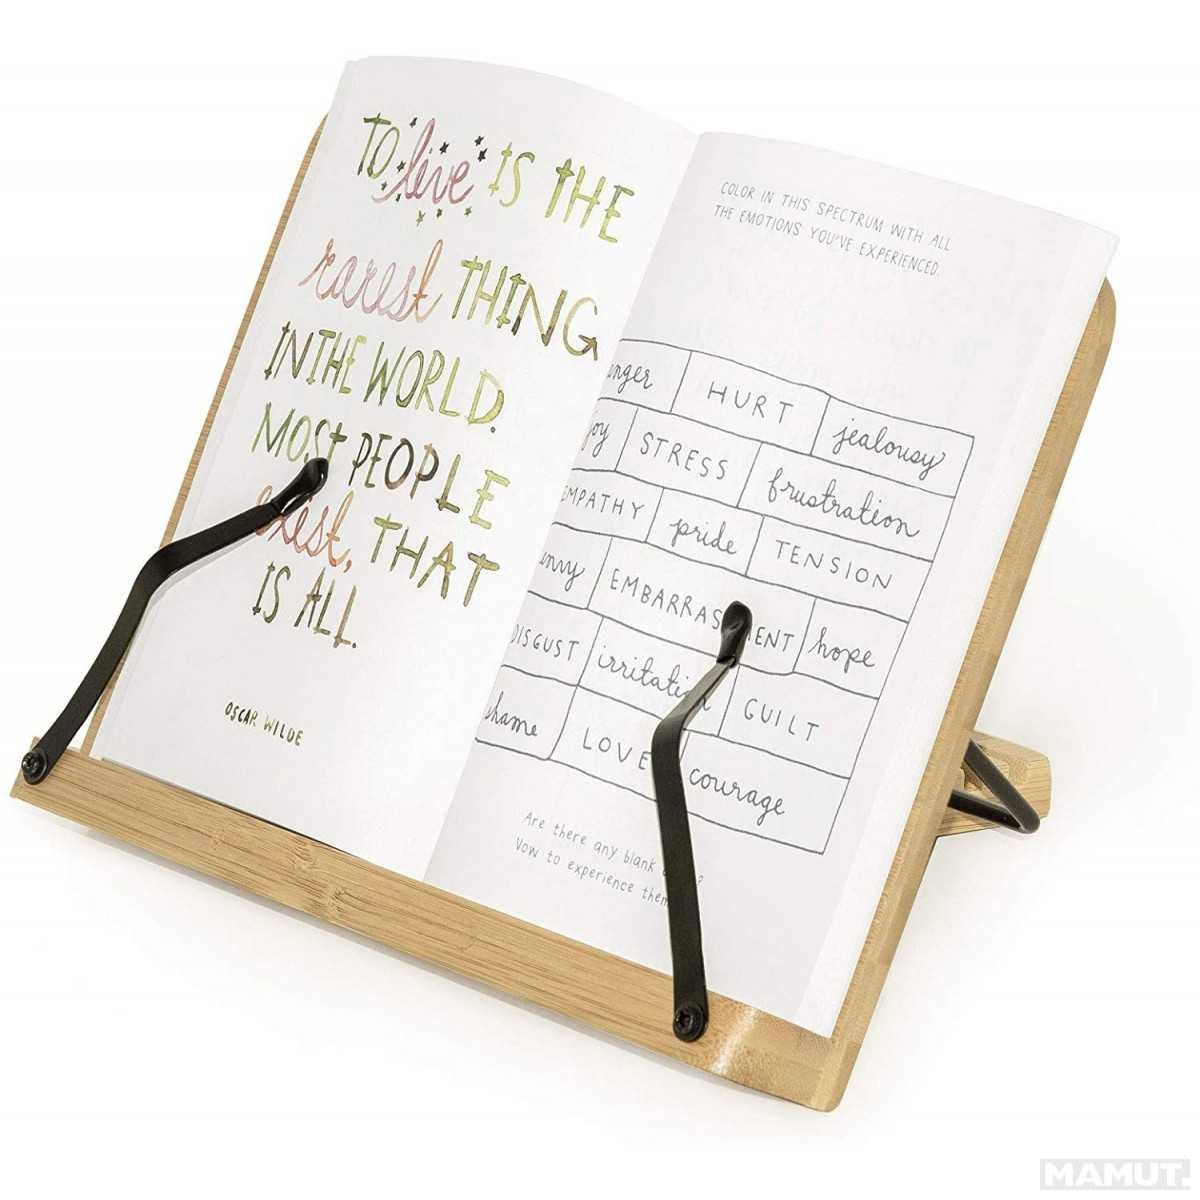 TO live IS THE
rarest THING
IN THE WORLD.
MOST PEOPLE
exist, THAT
IS ALL.
OSCAR WILDE
COLOR IN THIS SPECTRUM WITH ALL
THE EMOTIONS YOU'VE EXPERIENCED.
HURT jealousy
joy STRESS frustration
EMPATHY pride TENSION
envy EMBARRASSMENT hope
DISGUST irritation GUILT
shame LOVE courage
Are there any blank
Vow to experience them
MAMUT.